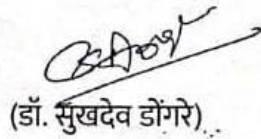 (डॉ. सुखदेव डोंगरे)